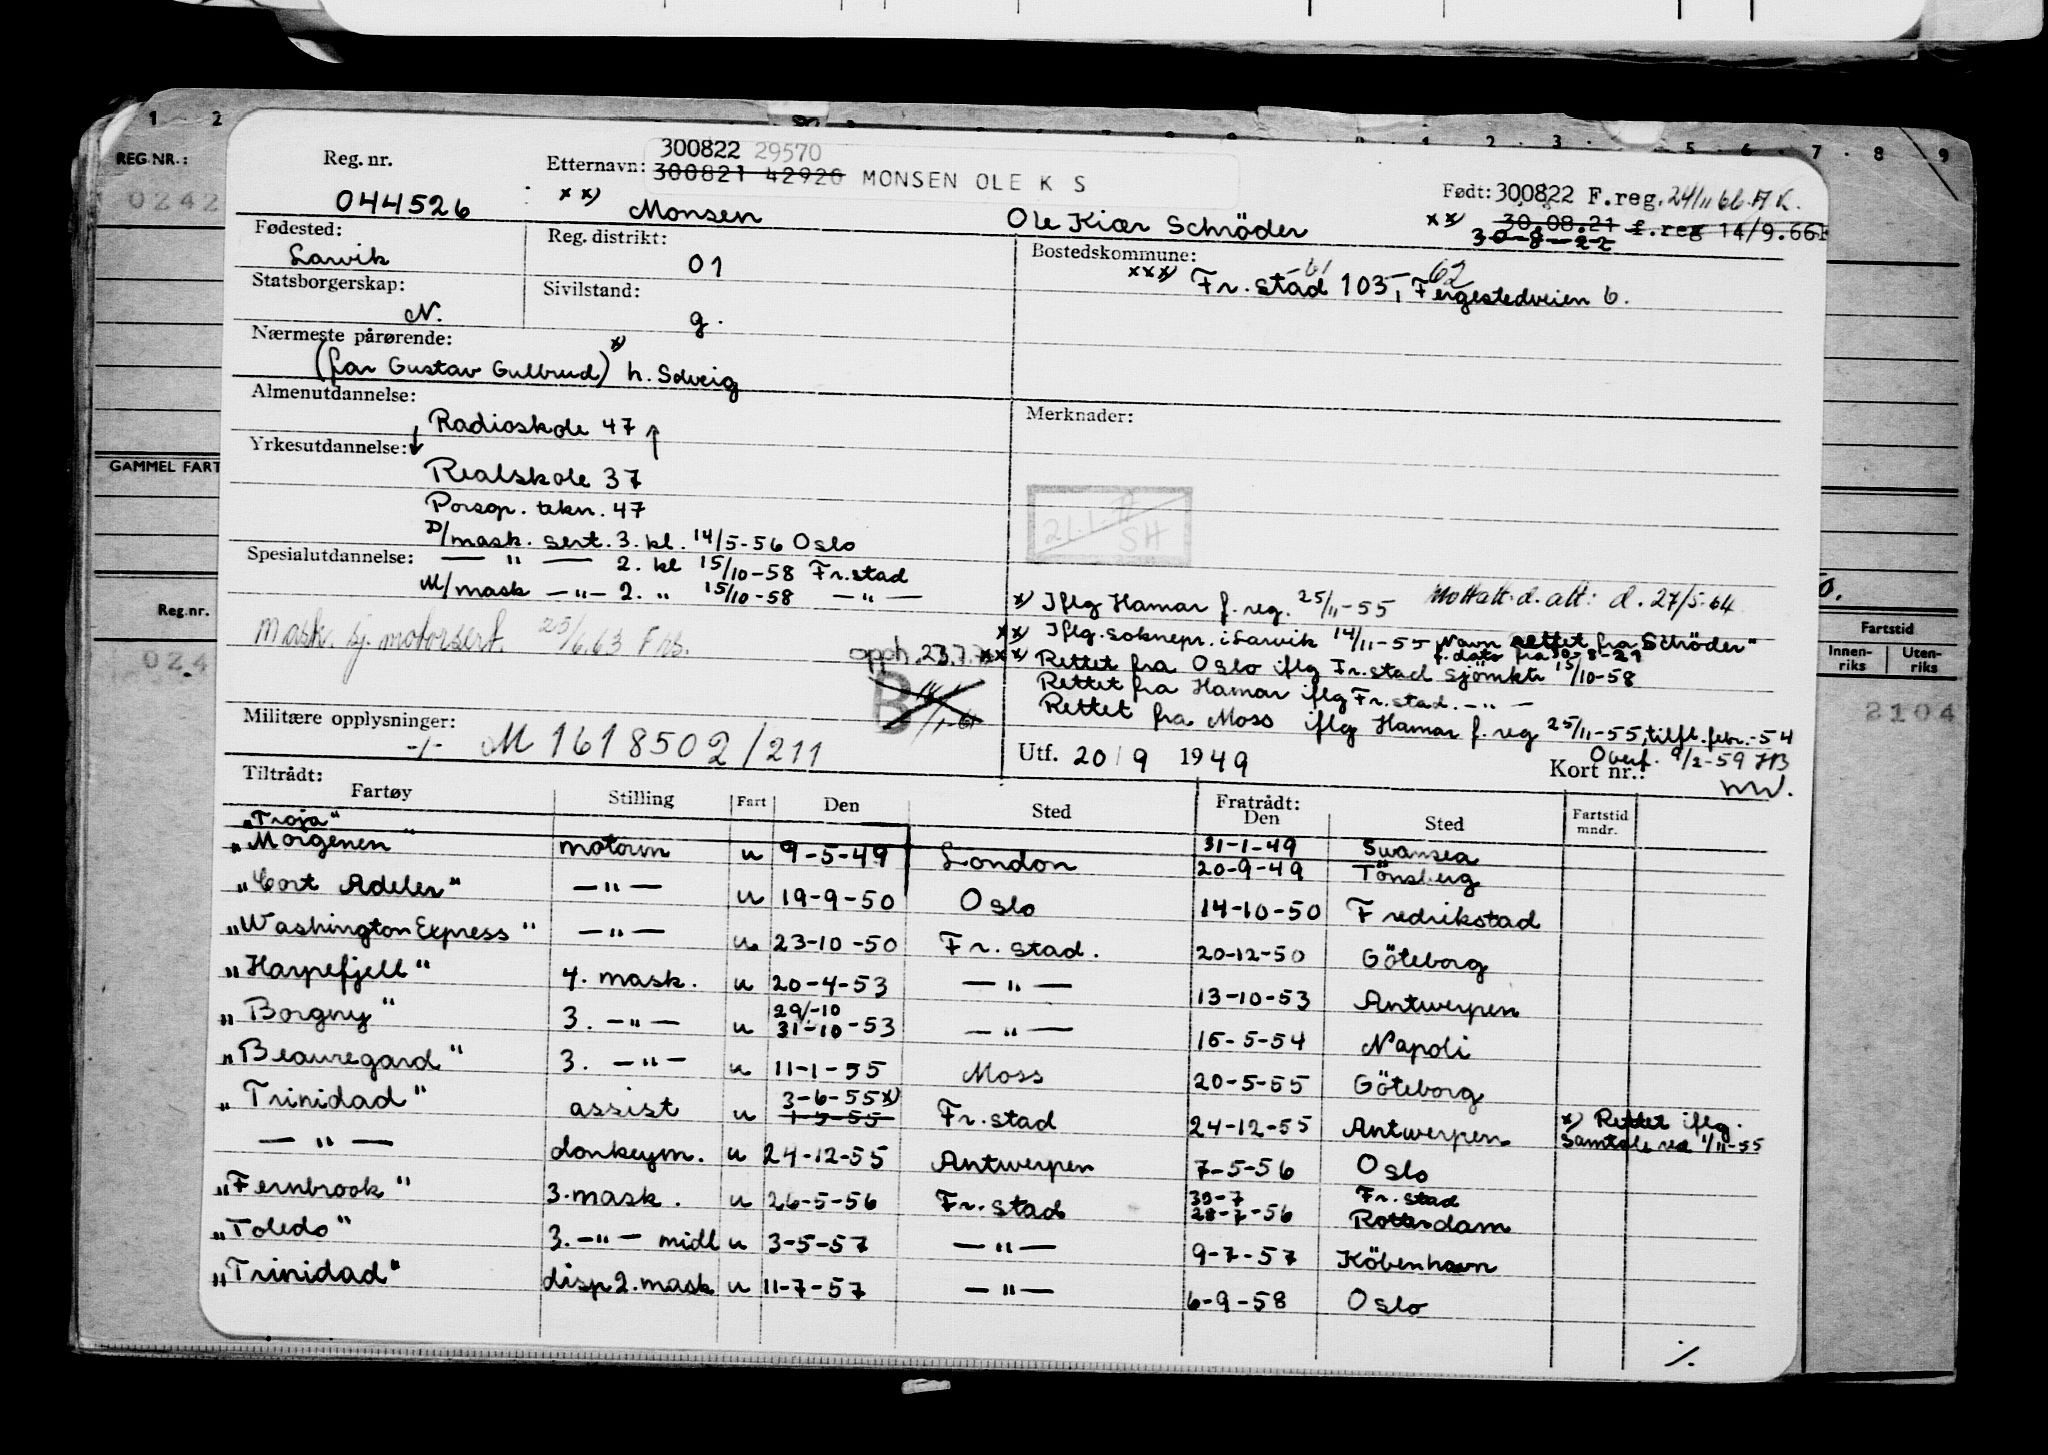 1 2 2 3 5 6 7 8 9
REG.NR.:
0242
Reg. nr.
044526
Etternavn: 300822 29570
300821 42920 MONSEN OLE K S
xx) Monsen Ole Kiær Schröder
Født: 300822 F.reg. 24/11 66 A K.
xx) 30.08.21 f.reg 14/9.66
30-8-22
Fødested:
Larvik
Reg. distrikt:
01
Bostedskommune:
xxx) Fr.stad 103, Fergestedveien 6.
61 62
Statsborgerskap:
N.
Sivilstand:
g.
Nærmeste pårørende:
(far Gustav Gulbrud) x) h. Solveig
Almenutdannelse:
Radioskole 47
Merknader:
Yrkesutdannelse:
Realskole 37
Porsgr. tekn. 47
D/mask. sert. 3. kl. 14/5-56 Oslo
Spesialutdannelse: — " — 2. kl 15/10-58 Fr.stad
M/mask — " — 2. " 15/10-58 — " —
Mask. kj. motorsert. 25/6.63 F
21.1.
SH
Mottatt d. att: d. 27/5-64
x) Iflg Hamar f. reg. 25/11-55
xx) Iflg. soknepr. i Larvik 14/11-55 Navn rettet fra Schröder"
f. dato fra 30-8-21
xxx) Rettet fra Oslo iflg Fr.stad sjömktr 15/10-58
Rettet fra Hamar iflg Fr.stad. — " —
Rettet fra Moss iflg Hamar f. reg 25/11-55, tilfl. febr.-54
opph. 23.7.
B
Militære opplysninger:
-/- M 1618502/211
Utf. 20/9 1949
Overf. 9/2-59 HB
Kort nr.:
GAMMEL FART
Reg.nr.
024
Fartstid
Innenriks Utenriks
2104
Tiltrådt:
Fartøy Stilling Fart Den Sted Fratrådt: Den Sted Fartstid mndr.
"Troja" 31-1-49 Swansea
"Morgenen" motorm u 9-5-49 London 20-9-49 Tönsberg
"Cort Adeler" — " — u 19-9-50 Oslo 14-10-50 Fredrikstad
"Washington Express" — " — u 23-10-50 Fr. stad. 20-12-50 Göteborg
"Harpefjell" 4. mask. u 20-4-53 — " — 13-10-53 Antwerpen
"Borgny" 3. — " — u 29/-10 31-10-53 — " — 15-5-54 Napoli
"Beauregard" 3. — " — u 11-1-55 Moss 20-5-55 Göteborg
"Trinidad" assist u 3-6-55 x) 1-5-55 Fr.stad 24-12-55 Antwerpen x) Rettet iflg.
samtale ved 1/11-55
— " — donkeym. u 24-12-55 Antwerpen 7-5-56 Oslo
"Fernbrook" 3. mask. u 26-5-56 Fr.stad 30-7 28-7-56 Fr.stad Rotterdam
"Toledo" 3. — " — midl u 3-5-57 — " — 9-7-57 Köbenhavn
"Trinidad" disp 2. mask u 11-7-57 — " — 6-9-58 Oslo
./.